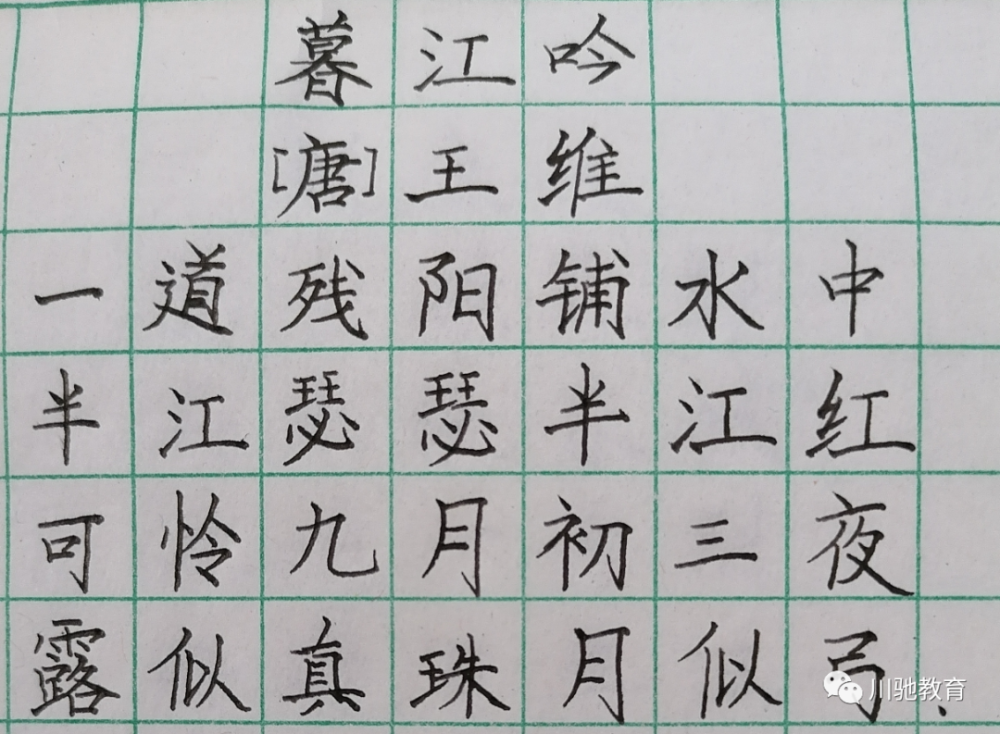 暮江吟
[唐]王维
一道残阳铺水中
半江瑟瑟半江红
可怜九月初三夜
露似真珠月似弓.
川驰教育